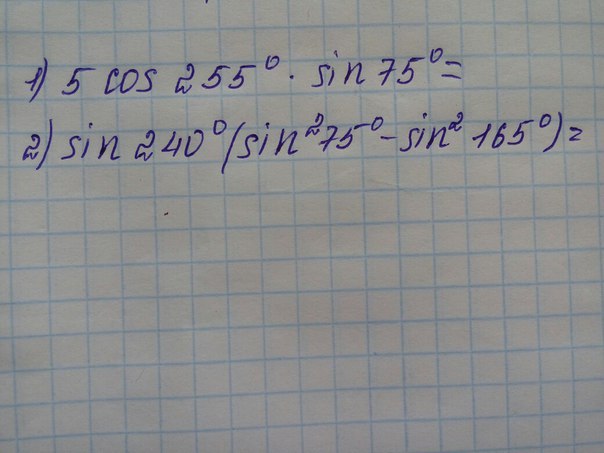 1) 5 cos 255° · sin 75° =
2) sin 240° (sin² 75° - sin² 165°) =